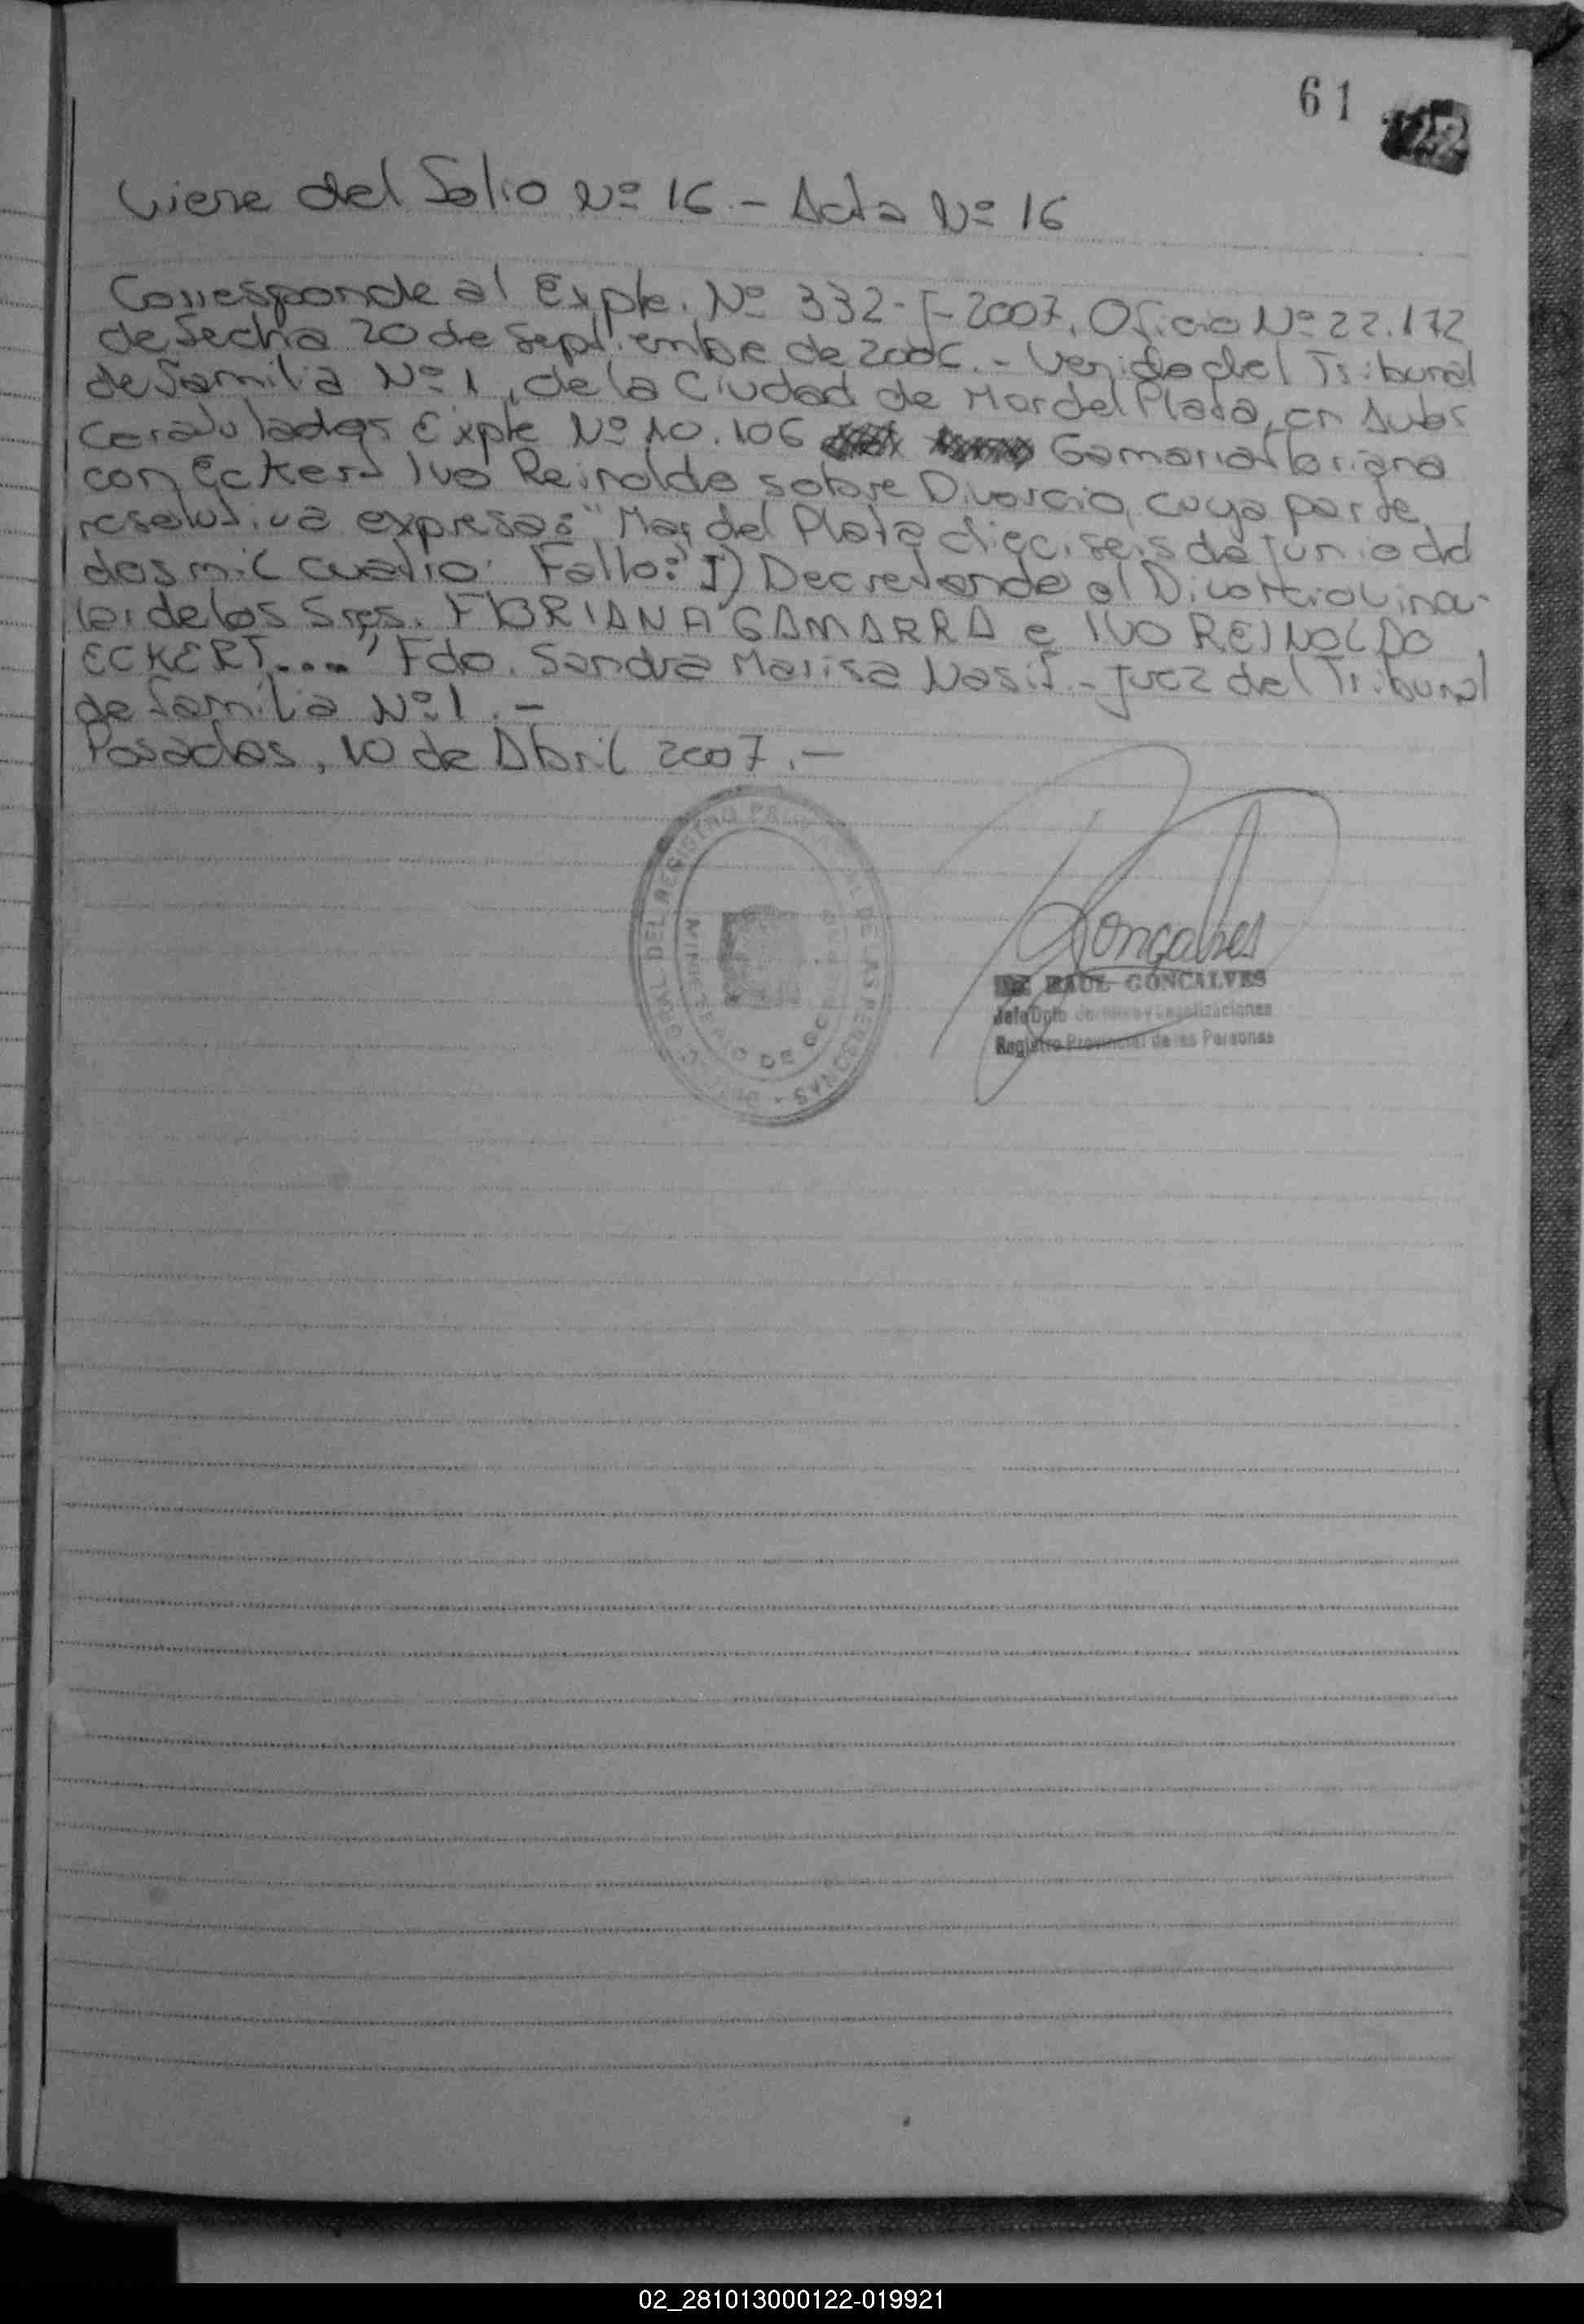 61
Viene del Folio Nº 16 - Acta Nº 16
Corresponde al Expte. Nº 332-T-2007, Oficio Nº 22.172
de fecha 20 de Septiembre de 2006.- Venido del Tribunal
de familia Nº 1, de la Ciudad de Mar del Plata, en Autos
Caratulados Expte Nº 10.106 Gamarra Floriana
con Eckert Ivo Reinoldo sobre Divorcio, cuya parte
resolutiva expresa: "Mar del Plata dieciseis de Junio del
dos mil cuatro: Fallo: I) Decretando el Divorcio vincu-
lar de los Sres. FLORIANA GAMARRA e IVO REINOLDO
ECKERT...." Fdo. Sandra Marisa Nasif.- Juez del Tribunal
de familia Nº 1.-
Posadas, 10 de Abril 2007.-
DEL REGISTRO DE LAS PERSONAS
MINISTERIO DE GOBIERNO
Goncalves
RAUL GONCALVES
Jefe Dpto y Legalizaciones
Registro Provincial de las Personas
02_281013000122-019921